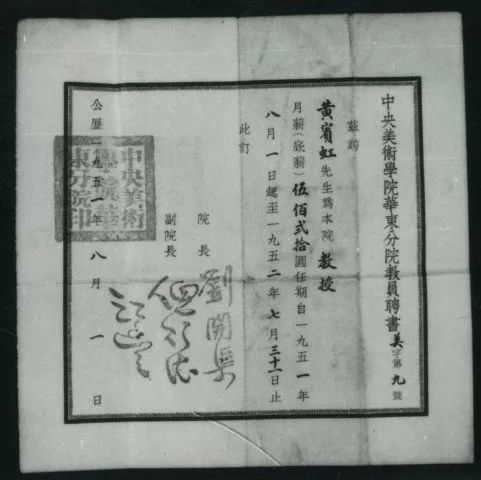 中央美術學院華東分院教員聘書美字第九號
茲聘
黃賓虹先生爲本院教授
月薪(底薪)伍佰弍拾圓任期自一九五一年
八月一日起至一九五二年七月三十一日止
此訂
院長
劉開渠
副院長
倪貽德
江豐
公歷一九五一年八月一日
中央美術
學院華
東分院印